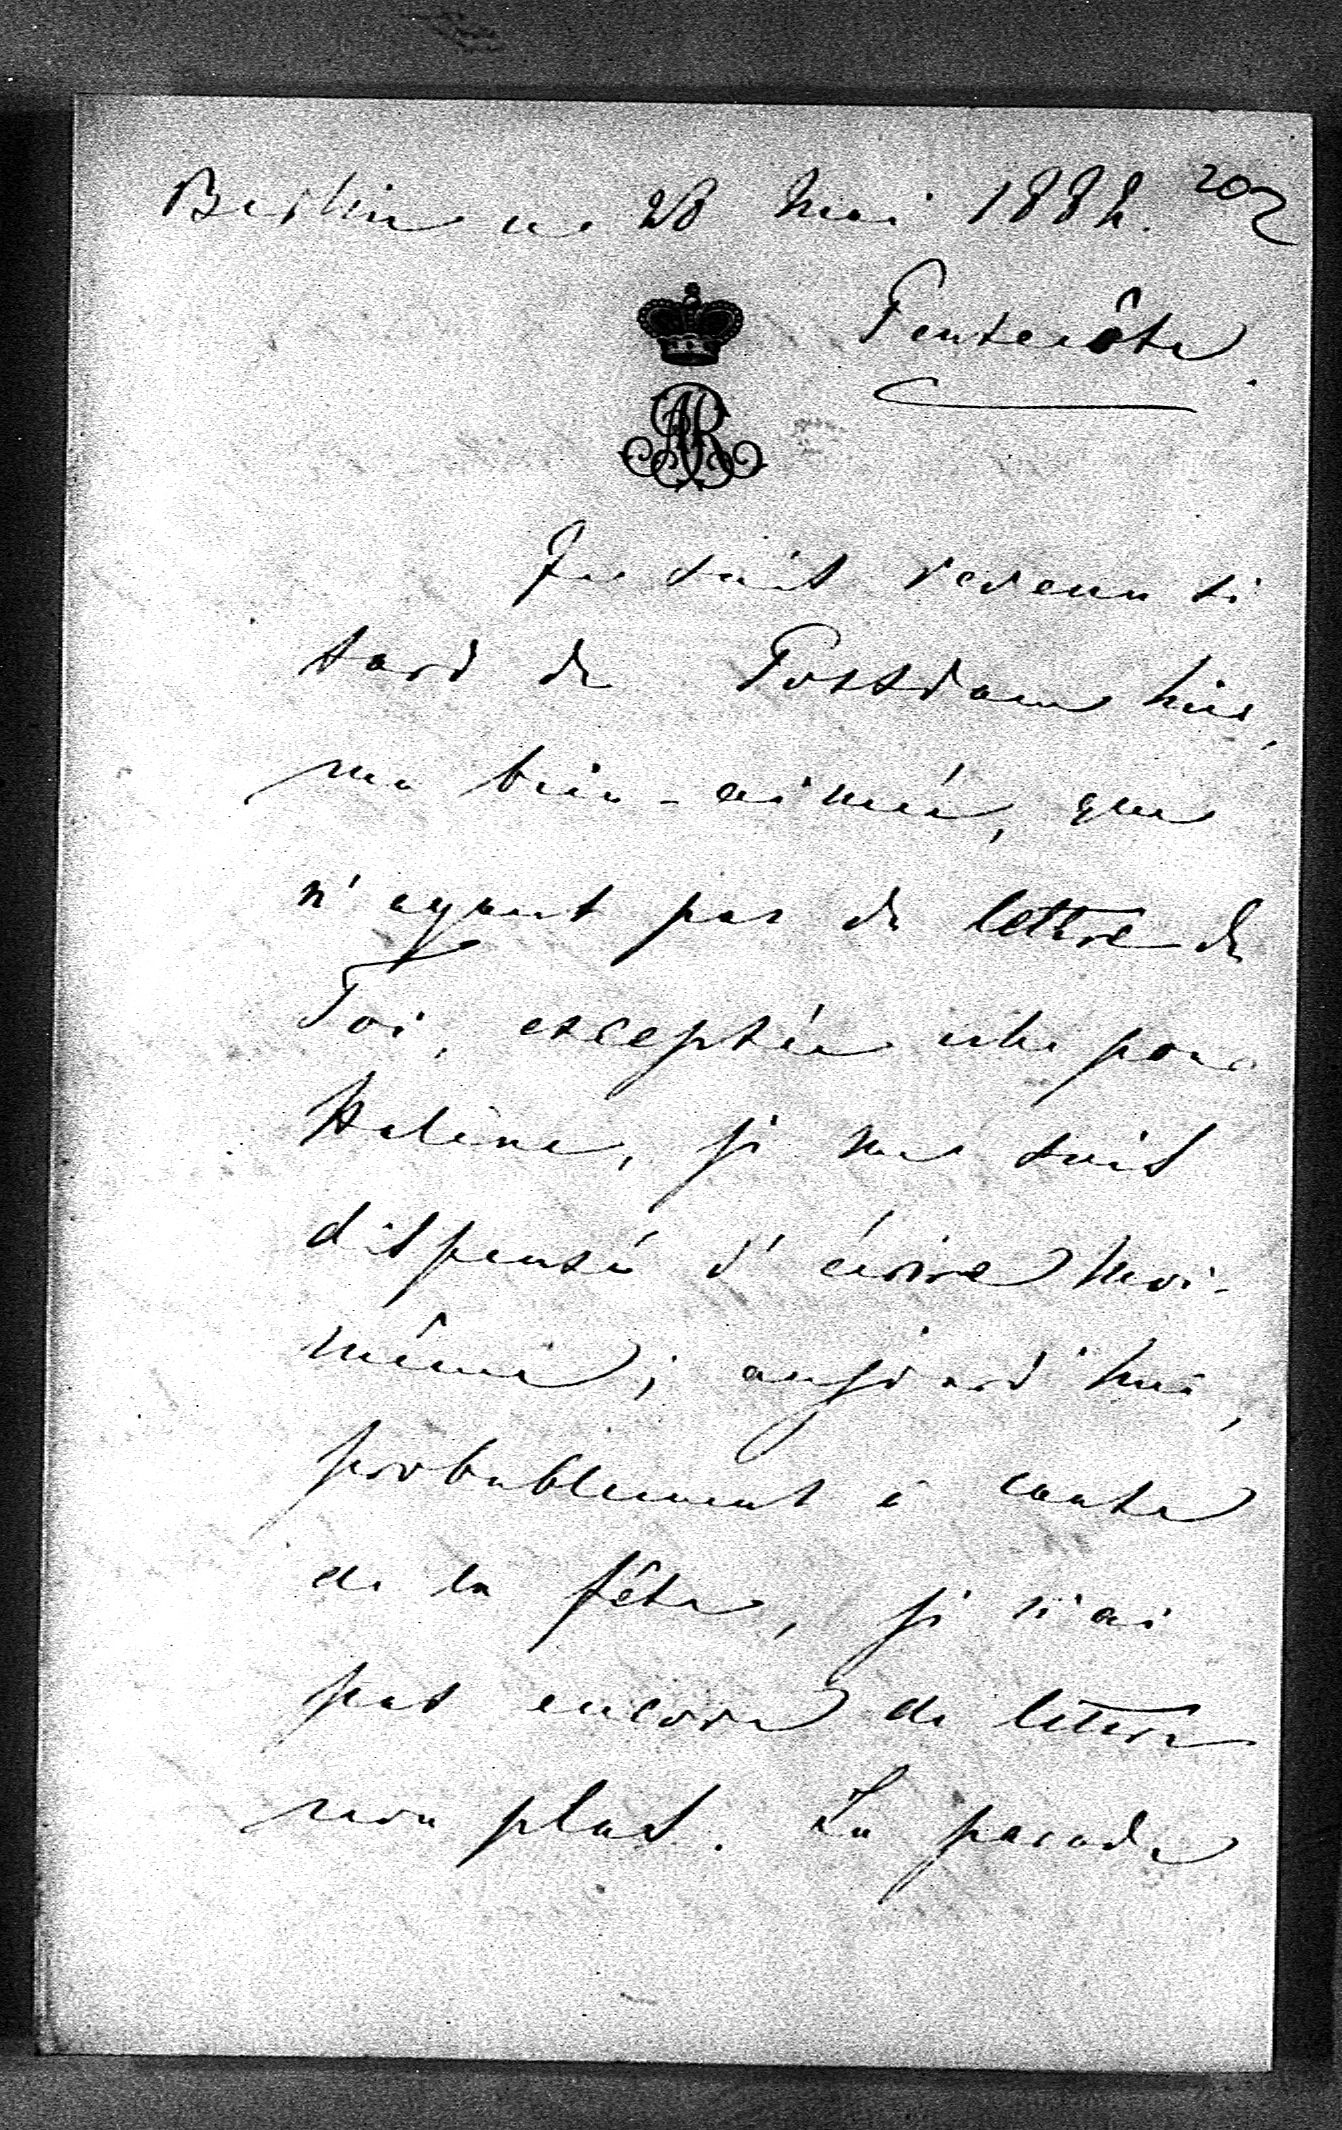 Berlin ce 28 Mai 1882. 202
Pentecôte.
AR
Je suis revenu si
tard de Potsdam hier,
ma bien-aimée, que
n'ayant pas de lettre de
Toi, exceptée celle pour
Hélène, je me suis
dispensé d'écrire moi-
même; aujourd'hui,
probablement à cause
de la fête, je n'ai
pas encore de lettre
non plus. La parade